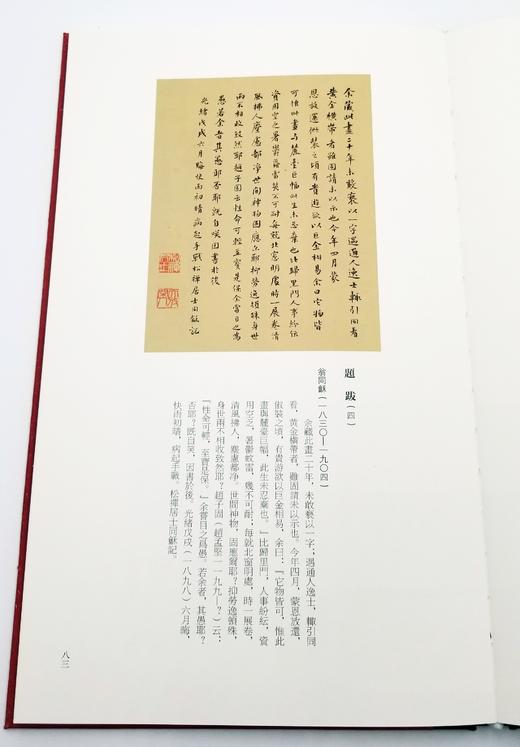 余藏此畫二十年未敢褻以一字遇通人逸士輒引同看
黃金橫帶者雖固請未以示也今年四月蒙
恩放還俶裝之頃有貴遊欲以巨金相易余曰它物皆
可惟此畫與麓臺巨幅此生未忍棄也比歸里門人事紛紜
資用空乏暑鬱蚊雷幾不可耐每就北窓明處時一展卷清
風拂人塵慮都淨世間神物固應爾耶抑勞逸頓殊身世
兩不相收致然耶趙子固云性命可輕至寶是保余嘗目之爲
愚若余者其愚耶否耶既自咲因書於後
光緒戊戌六月晦快雨初晴病起手戰松禪居士同龢記
題 跋（四）
翁同龢（一八三〇—一九〇四）
余藏此畫二十年，未敢褻以一字；遇通人逸士，輒引同
看，黃金橫帶者，雖固請未以示也。今年四月，蒙恩放還，
俶裝之頃，有貴游欲以巨金相易，余曰：『它物皆可，惟此
畫與麓臺巨幅，此生未忍棄也。』比歸里門，人事紛紜，資
用空乏，暑鬱蚊雷，幾不可耐；每就北窗明處，時一展卷，
清風拂人，塵慮都淨。世間神物，固應爾耶？抑勞逸頓殊，
身世兩不相收致然耶？趙子固（趙孟堅一一九九—？）云：
『性命可輕，至寶是保。』余嘗目之爲愚。若余者，其愚耶？
否耶？既自笑，因書於後。光緒戊戌（一八九八）六月晦，
快雨初晴，病起手戰。松禪居士同龢記。
八三